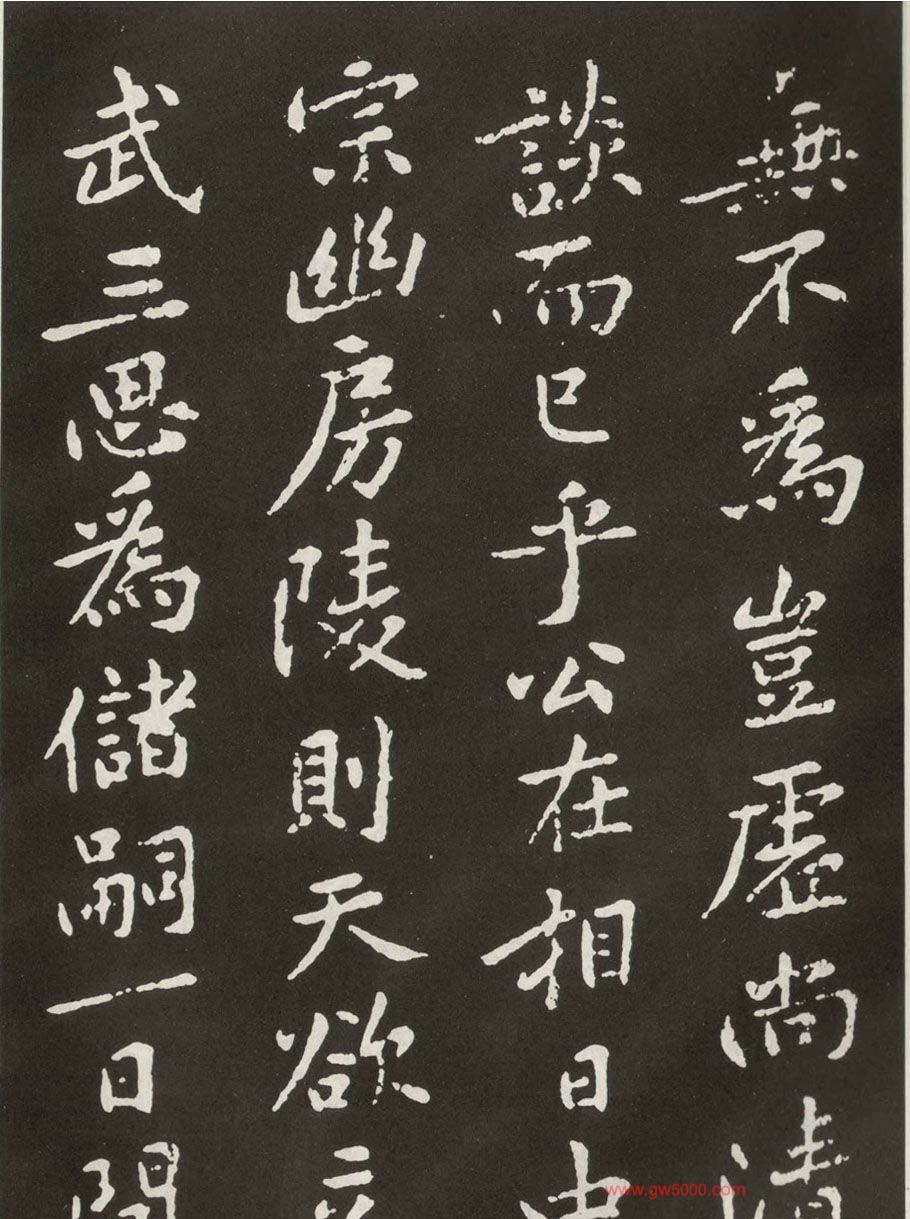 無不為豈虛尚清
談而已乎公在相日中
宗幽房陵則天欲立
武三思為儲嗣一日問
www.gw5000.com